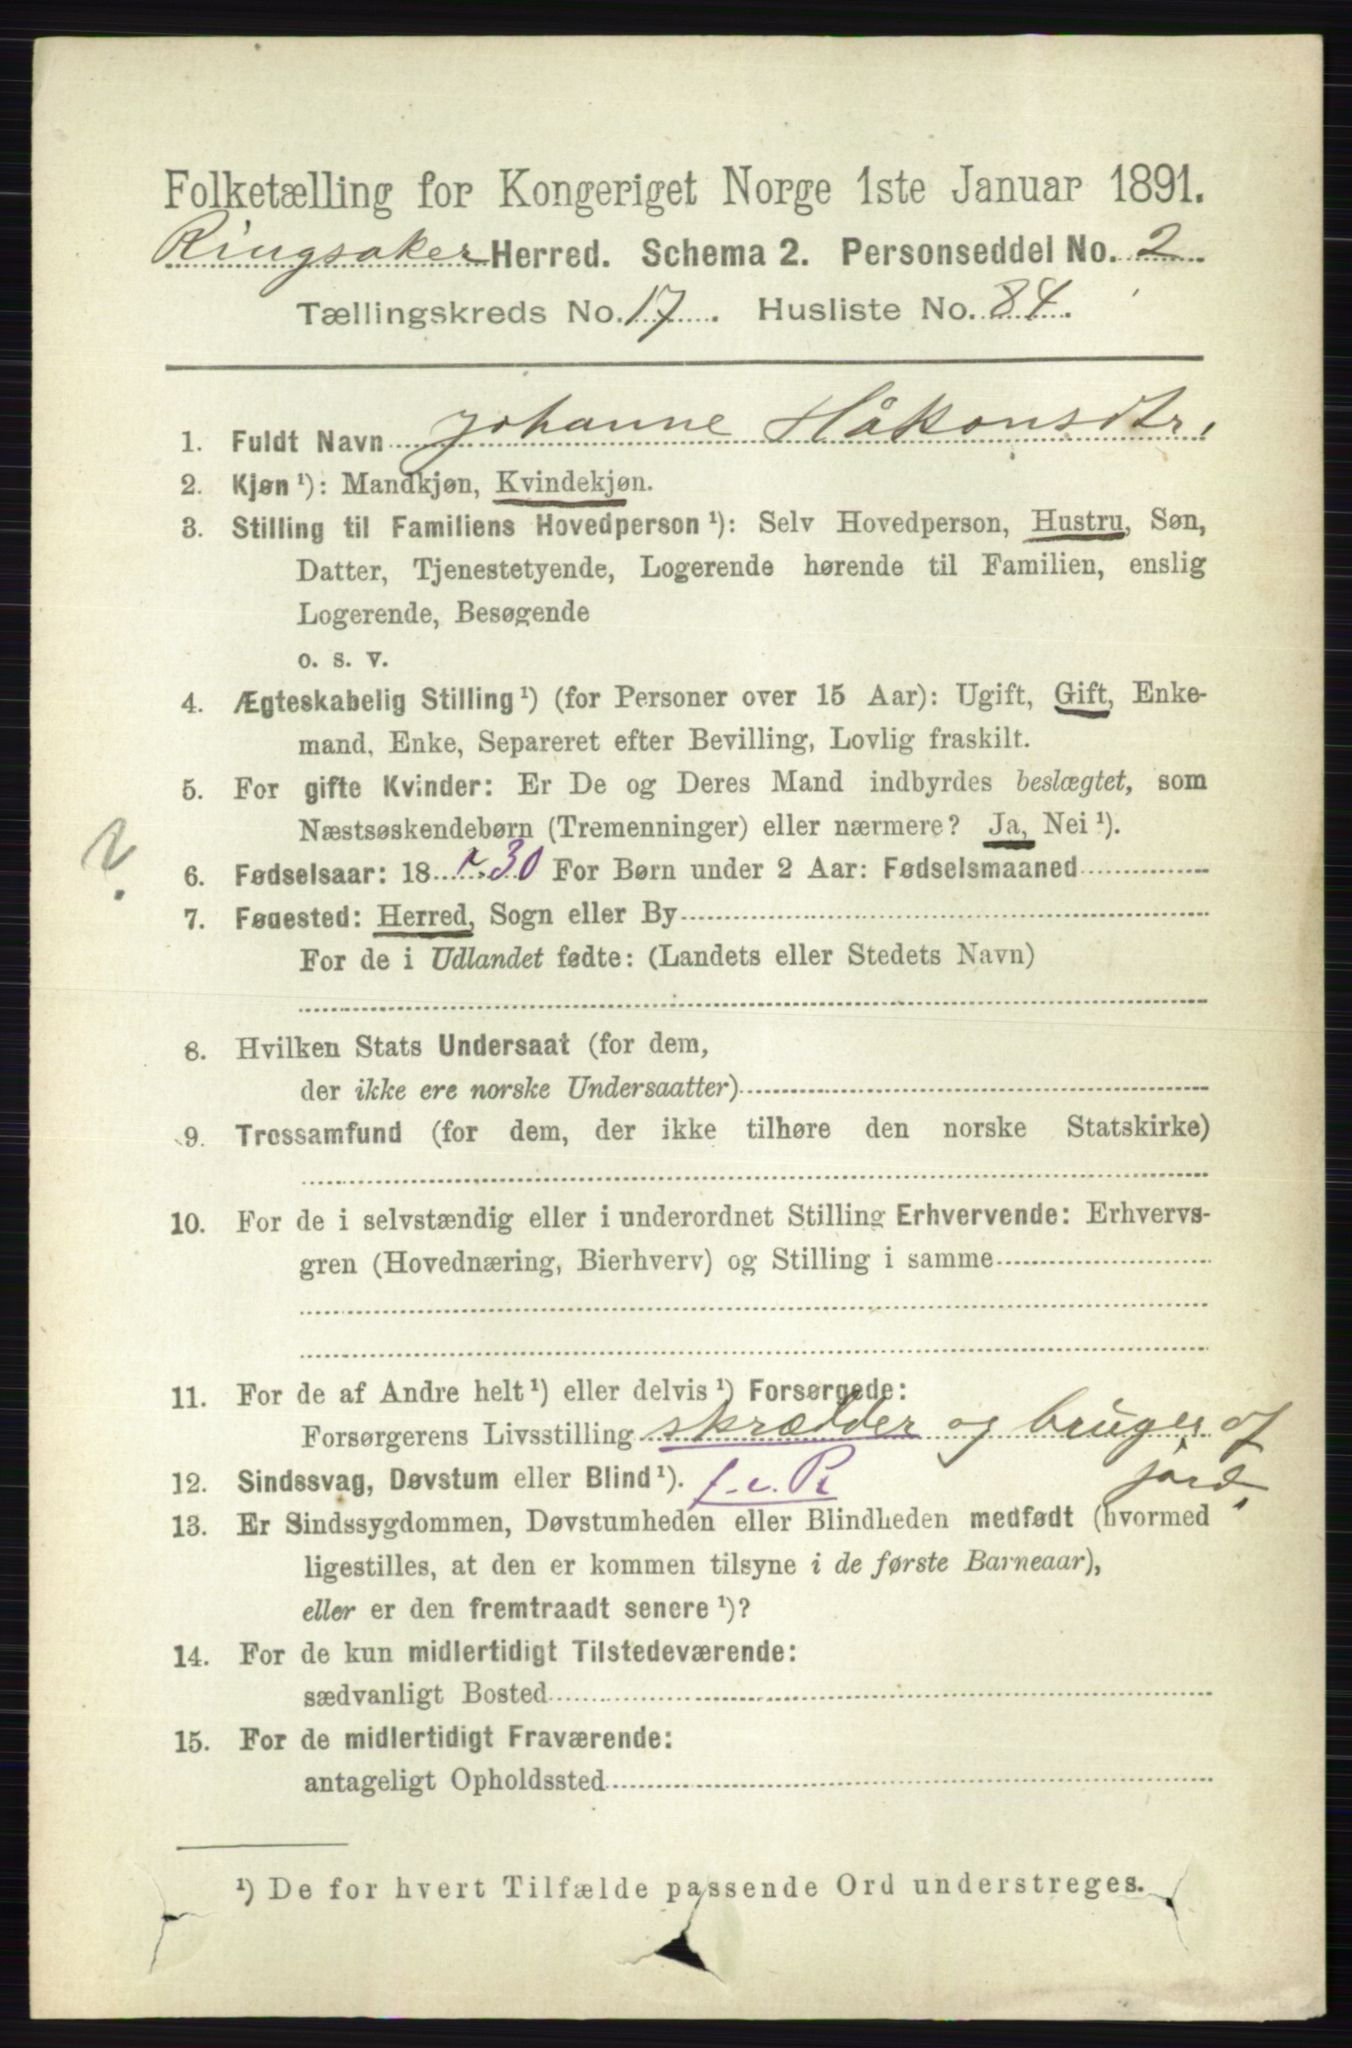 Folketælling for Kongeriget Norge 1ste Januar 1891.
Ringsaker Herred. Schema 2. Personseddel No. 2
Tællingskreds No. 17. Husliste No. 84.
1. Fuldt Navn Johanne Håkonsdtr,
2. Kjøn ¹): Mandkjøn, Kvindekjøn.
3. Stilling til Familiens Hovedperson ¹): Selv Hovedperson, Hustru, Søn,
Datter, Tjenestetyende, Logerende hørende til Familien, enslig
Logerende, Besøgende
o. s. v.
4. Ægteskabelig Stilling ¹) (for Personer over 15 Aar): Ugift, Gift, Enke-
mand, Enke, Separeret efter Bevilling, Lovlig fraskilt.
5. For gifte Kvinder: Er De og Deres Mand indbyrdes beslægtet, som
Næstsøskendebørn (Tremenninger) eller nærmere? Ja, Nei ¹).
?
6. Fødselsaar: 18 30 For Børn under 2 Aar: Fødselsmaaned
7. Fødested: Herred, Sogn eller By
For de i Udlandet fødte: (Landets eller Stedets Navn)
8. Hvilken Stats Undersaat (for dem,
der ikke ere norske Undersaatter)
9. Trossamfund (for dem, der ikke tilhøre den norske Statskirke)
10. For de i selvstændig eller i underordnet Stilling Erhvervende: Erhvervs-
gren (Hovednæring, Bierhverv) og Stilling i samme
11. For de af Andre helt ¹) eller delvis ¹) Forsørgede:
Forsørgerens Livsstilling skrædder og bruger af
jord,
12. Sindssvag, Døvstum eller Blind ¹).
13. Er Sindssygdommen, Døvstumheden eller Blindheden medfødt (hvormed
ligestilles, at den er kommen tilsyne i de første Barneaar),
eller er den fremtraadt senere ¹)?
14. For de kun midlertidigt Tilstedeværende:
sædvanligt Bosted
15. For de midlertidigt Fraværende:
antageligt Opholdssted
¹) De for hvert Tilfælde passende Ord understreges.